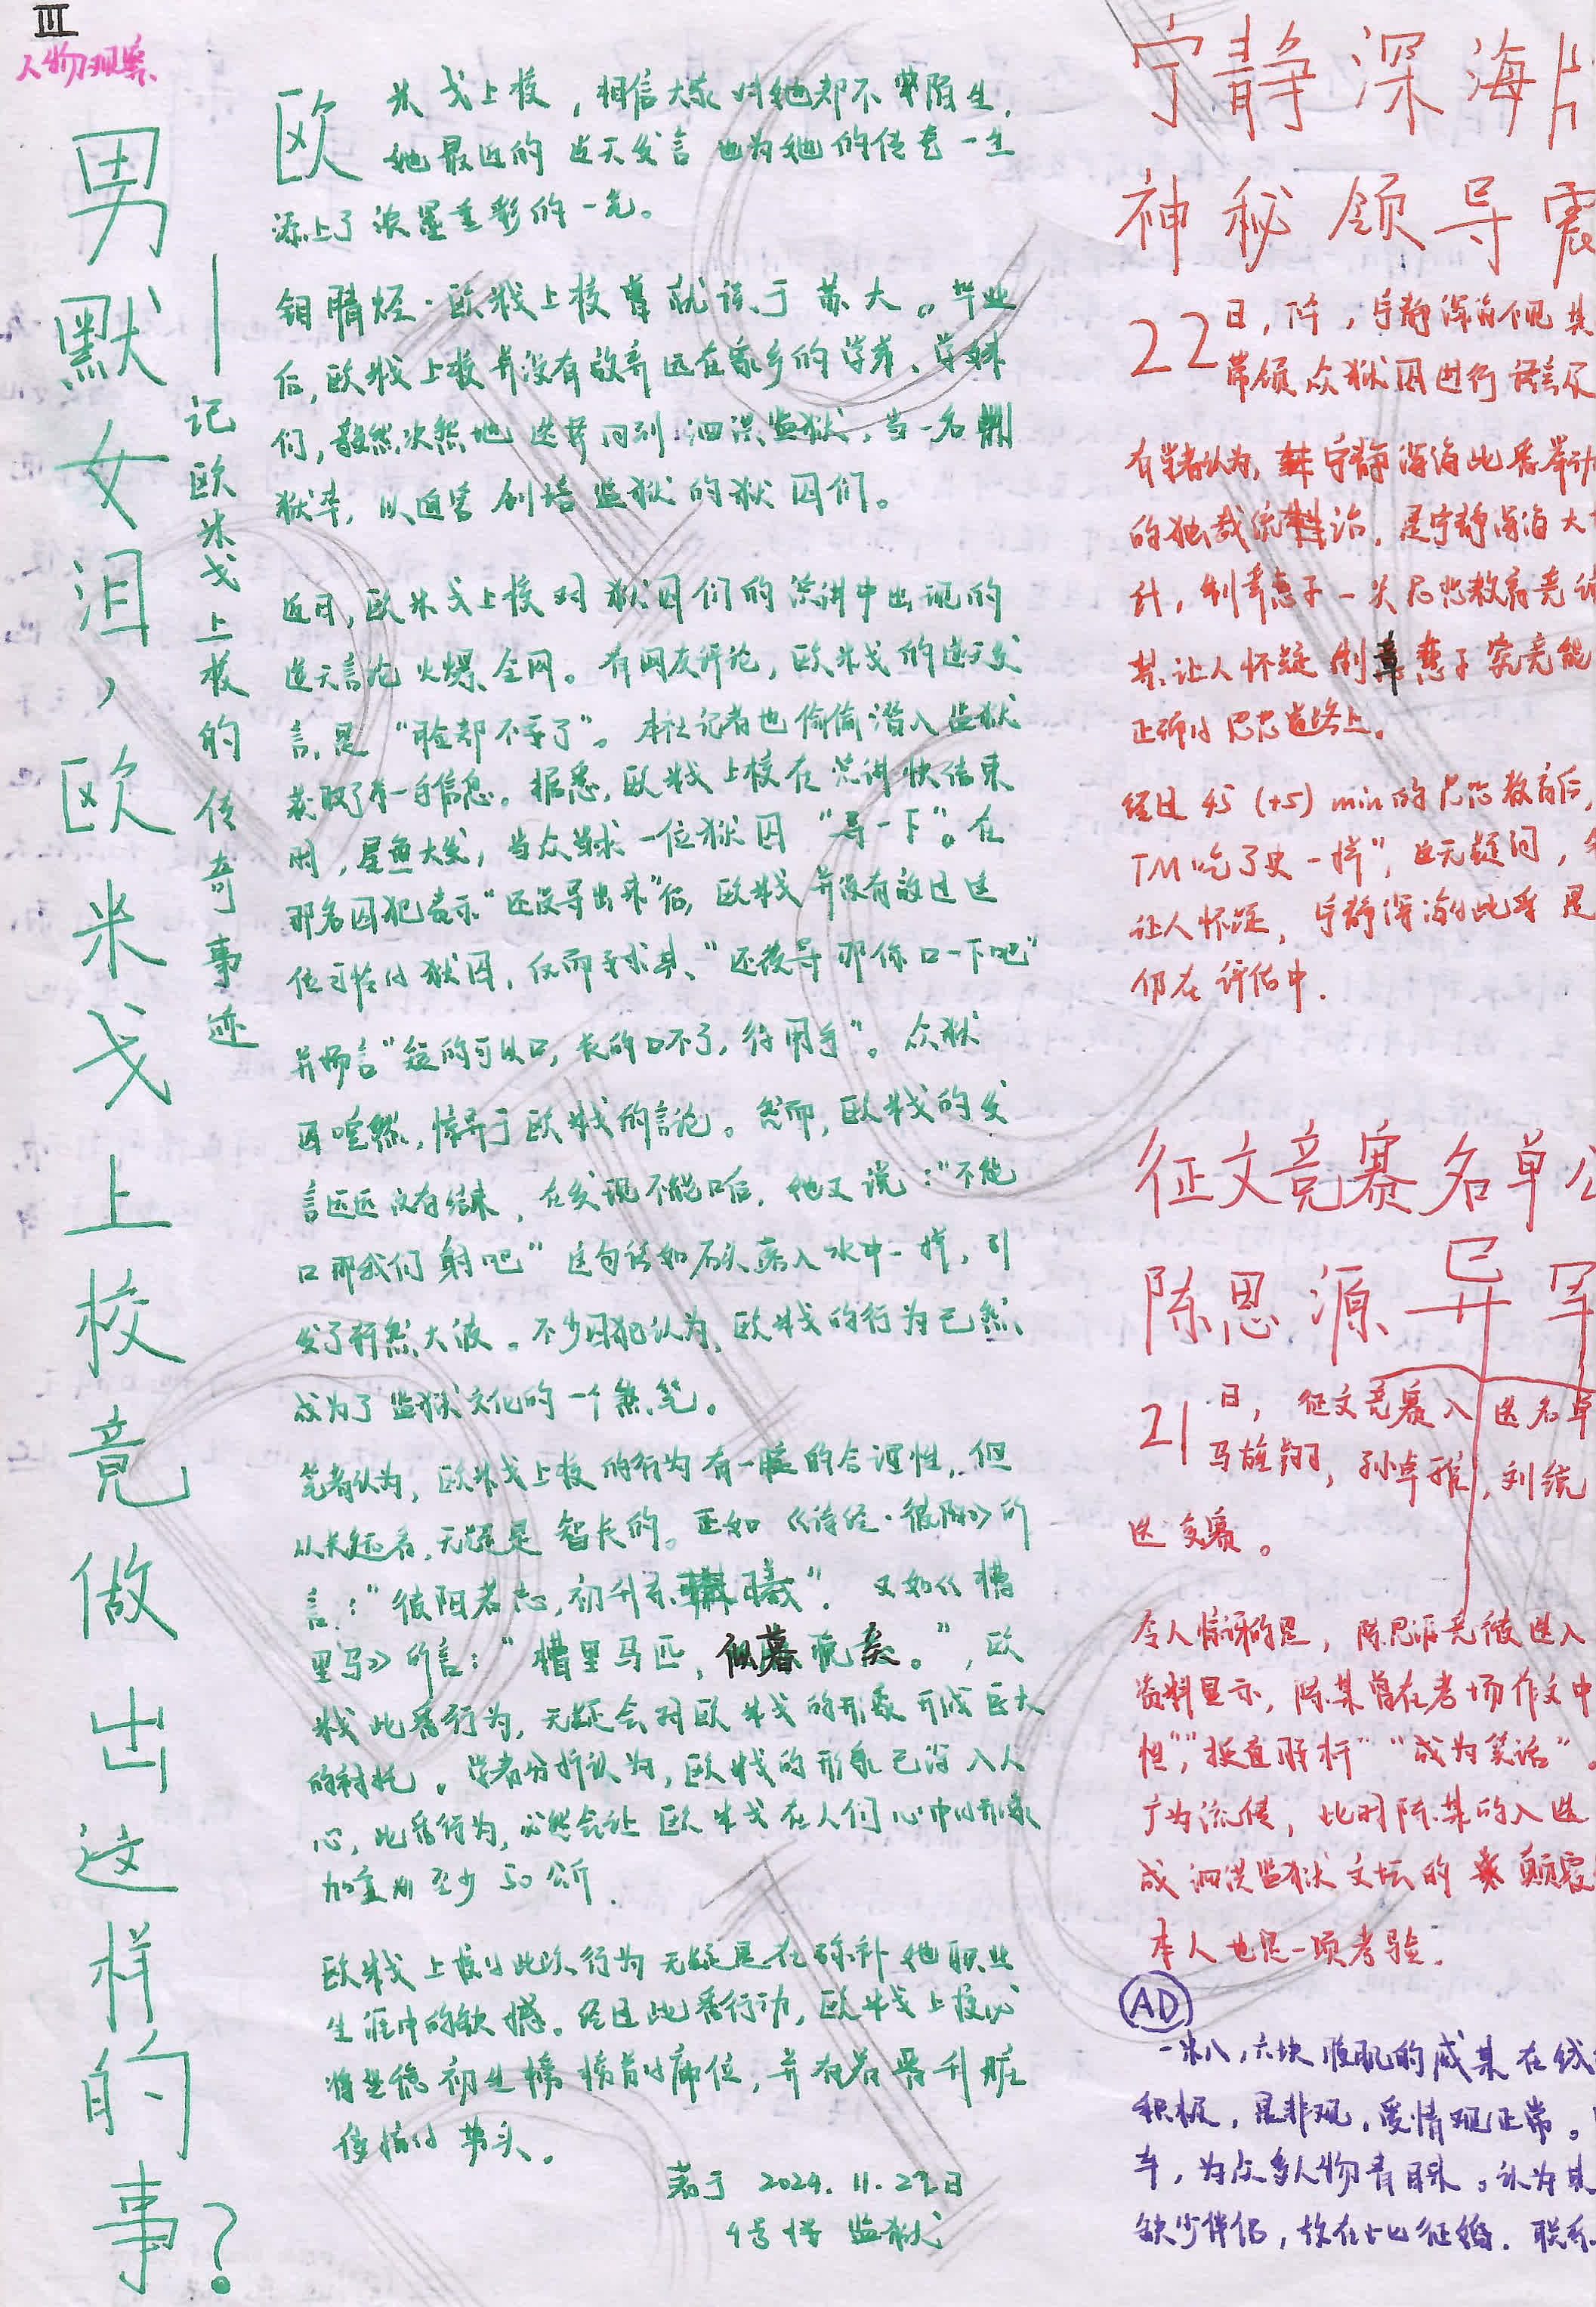 III
人物观察
男默女泪，欧米戈上校竟做出这样的事？
——记欧米戈上校的传奇事迹
欧米戈上校，相信大家对她都不陌生，
她最近的逆天发言也为她的传奇一生
添上了浓墨重彩的一笔。
欧米戈上校曾就读于苏大。毕业
后，欧米戈上校并没有放弃远在家乡的学弟、学妹
们，毅然决然地选择回到泗洪监狱，当一名
狱卒，以迫害监狱的狱囚们。
近日，欧米戈上校对狱囚们的演讲中出现的
逆天言论火爆全网。有网友评论，欧米戈的逆天发
言，是“脸都不要了”。本社记者也偷偷潜入监狱
获取了第一手信息。据悉，欧米戈上校在演讲快结束
时，大发，当众要求一位狱囚“导一下”。在
那名囚犯表示“还没导出来”后，欧米戈并没有放过这
位可怜的狱囚，反而要求其“还没导那你口一下吧”
并扬言“短的可以口，长的口不了，得用手”。众狱
囚哗然，惊异于欧米戈的言论。然而，欧米戈的发
言远远没有结束，在发现不能口后，她又说：“不能
口那我们射吧”这句话如石头落入水中一样，引
发了轩然大波。不少囚犯认为，欧米戈的行为已然
成为了监狱文化的一个败笔。
笔者认为，欧米戈上校的行为有一定的合理性，但
从长远看，无疑是智长的。正如《诗经·彼阳》所
言：“彼阳若志，初升东曦”，又如《槽
里马》所言：“槽里马匹，似暮疣矣。”，欧
米戈此番行为，无疑会对欧米戈的形象形成巨大
的衬托。学者分析认为，欧米戈的形象已深入人
心，此番行为，必然会让欧米戈在人们心中的形象
加重为至少50公斤。
欧米戈上校的此次行为无疑是在弥补她职业
生涯中的缺憾。经过此番行动，欧米戈上校必
将坐稳初生榜榜首的席位，并有着晋升
的势头。
著于2024.11.27日
监狱
宁静深海
神秘领导震
22日，下午，宁静深海不见其
带领众狱囚进行语言
有学者认为，宁静深海此番举动
的独裁统治，是宁静深海大
计，制章惠子一
其让人怀疑制章惠子究竟能
正确的道路上。
经过45(+5)min的教育后
TM吃了史一样”，毫无疑问，
让人怀疑，宁静深海的此举是
仍在评估中.
征文竞赛名单公
陈思源异军
21日，征文竞赛入选名单
马雄翔，孙卓雅，刘统
选复赛。
令人惊讶的是，陈思源竟被选入
资料显示，陈某曾在考场作文中
怛”，“挺直脊杆”“成为笑话”。
广为流传，此时陈某的入选
成泗洪监狱文坛的颠覆
本人也是一项考验.
AD
一米八，六块腹肌的戚某在线
积极，是非观，爱情观正常。
车，为众多人物青睐。认为其
缺少伴侣，故在此征婚.联系